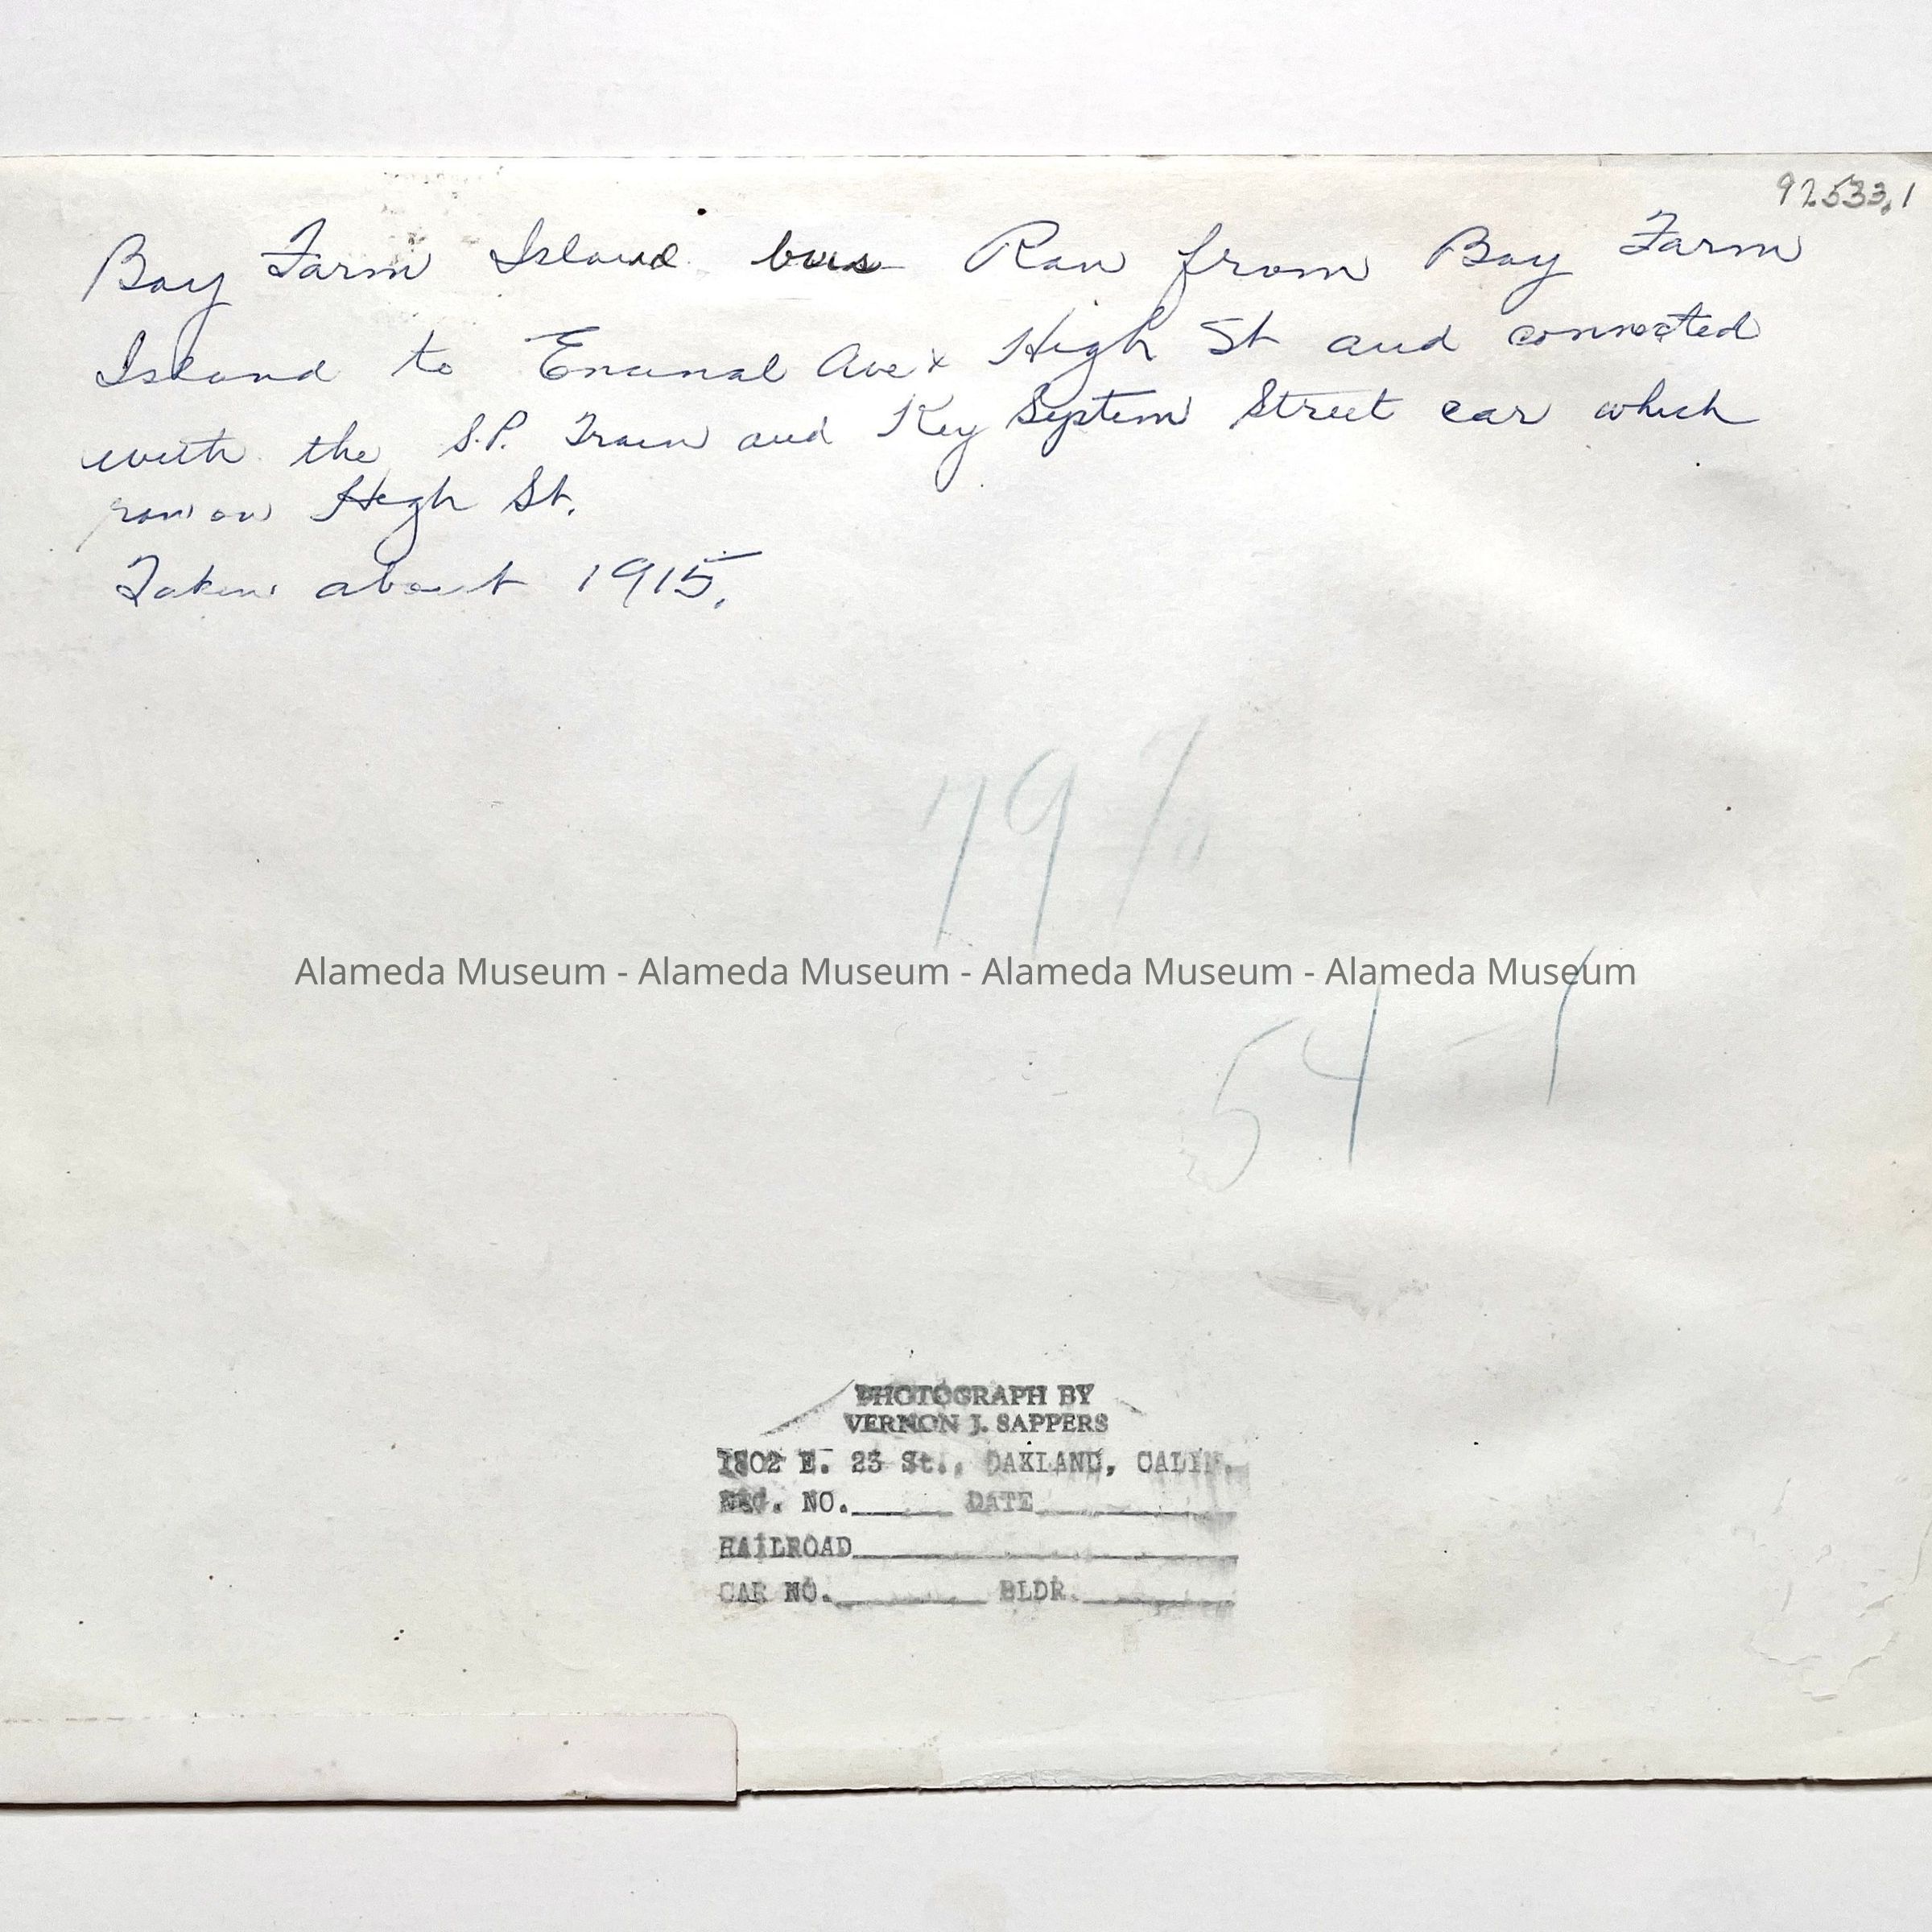 92.533.1
Bay Farm Island bus Ran from Bay Farm
Island to Encinal Ave x High St and connected
with the S.P. Train and Key System Street car which
ran on High St.
Taken about 1915.
79%
Alameda Museum - Alameda Museum - Alameda Museum - Alameda Museum
54-1
PHOTOGRAPH BY
VERNON J. SAPPERS
1802 E. 23 St., OAKLAND, CALIF.
NEG. NO. DATE
RAILROAD
CAR NO. BLDR.